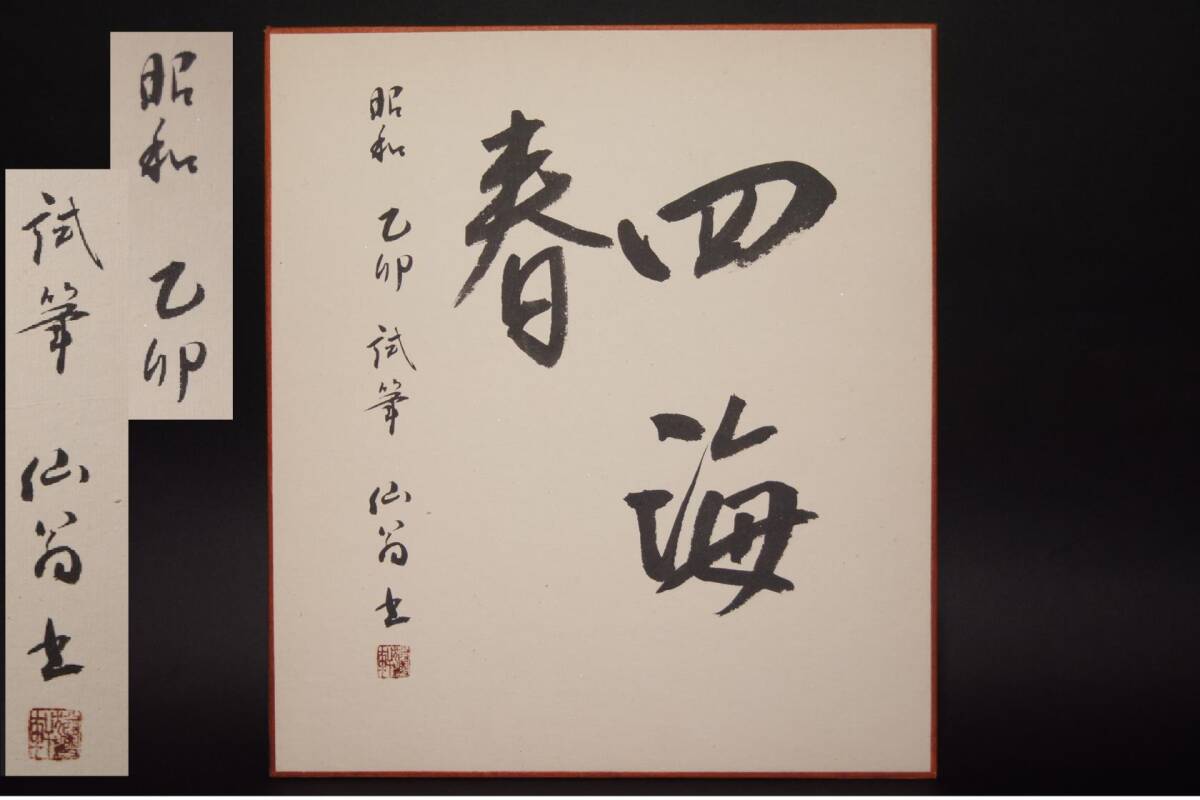 四海
春
昭和 乙卯 試筆 仙翁書
昭和 乙卯
試筆 仙翁書